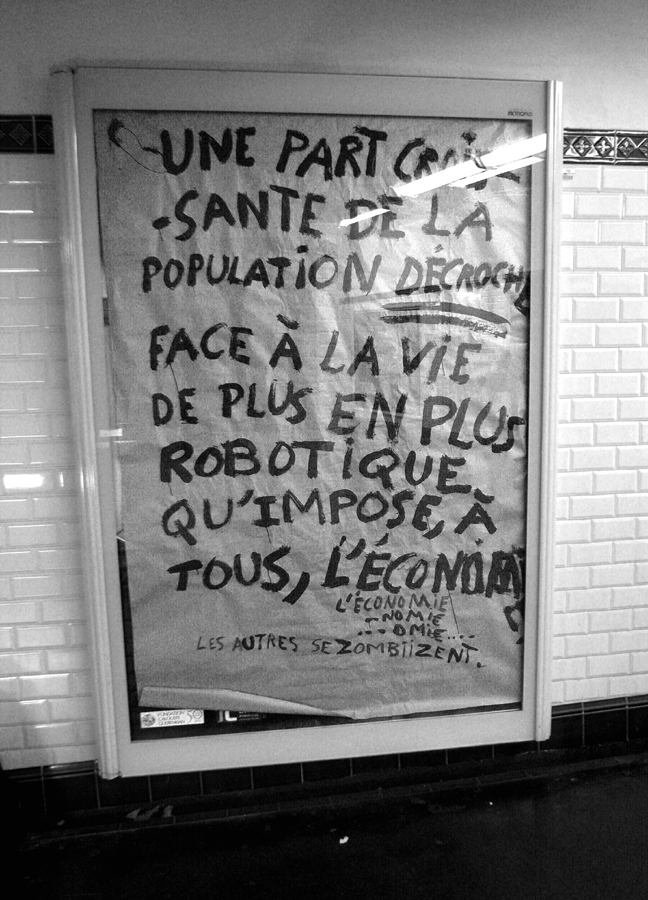 -UNE PART CROIS-
-SANTE DE LA
POPULATION DÉCROCHE
FACE À LA ViE
DE PLUS EN PLUS
ROBOTiQUE
QU'IMPOSE, À
TOUS, L'ÉCONOM
L'ÉCONOMIE
-NOMIE
... OMIE....
LES AUTRES SEZOMBIIZENT.
FONDATION
50